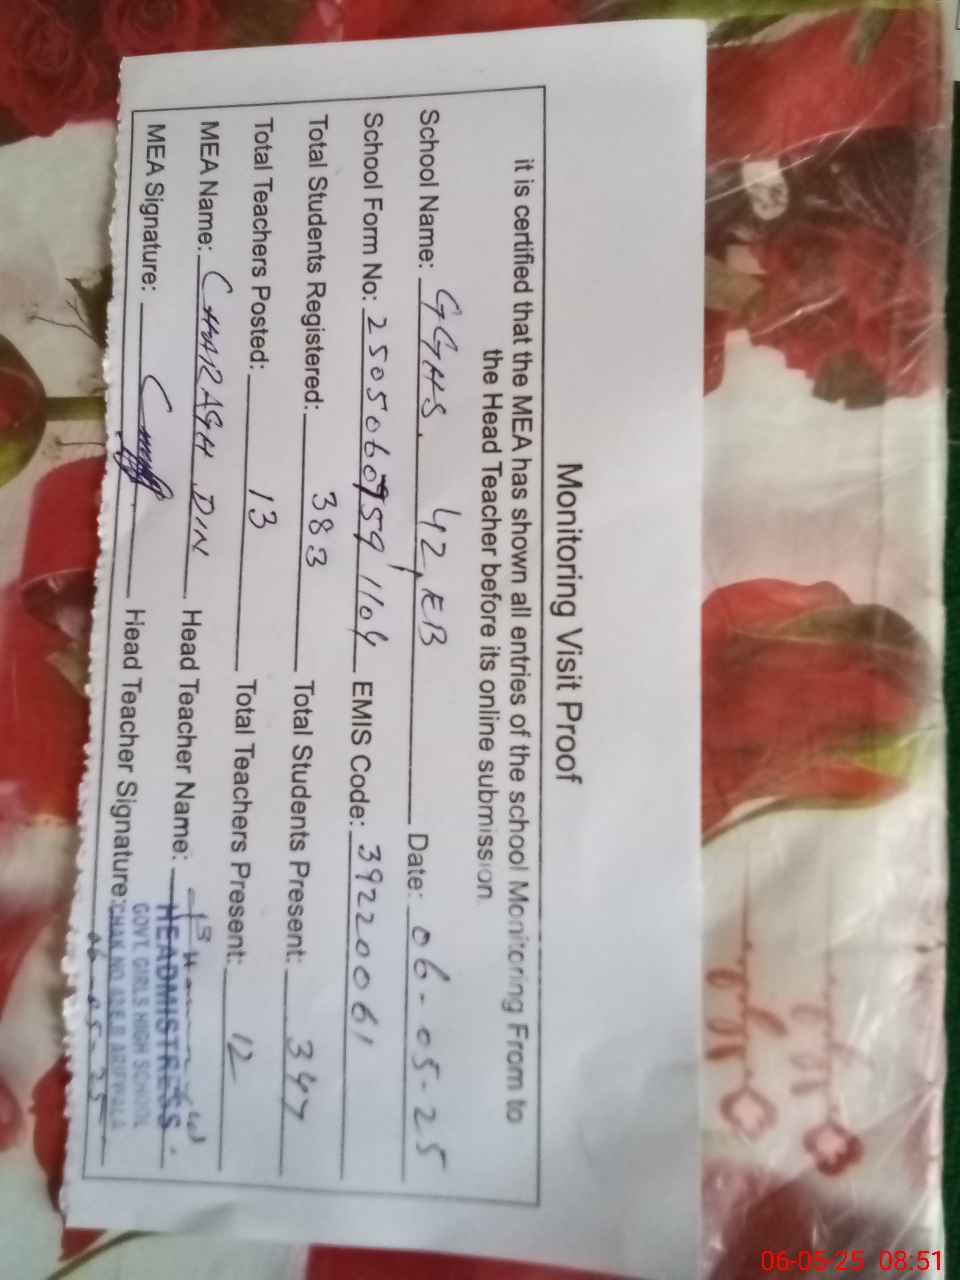 Monitoring Visit Proof
it is certified that the MEA has shown all entries of the school Monitoring From to
the Head Teacher before its online submission.
School Name: GGHS, 42, EB Date: 06-05-25
School Form No: 25050609591104 EMIS Code: 39220061
Total Students Registered: 383 Total Students Present: 347
Total Teachers Posted: 13 Total Teachers Present: 12
MEA Name: CHARAGH DIN Head Teacher Name:
HEADMISTRESS
GOVT. GIRLS HIGH SCHOOL
MEA Signature: Head Teacher Signature: CHAK NO. 42 E.B ARIFWALA
06-05-25
06-05-25 08:51